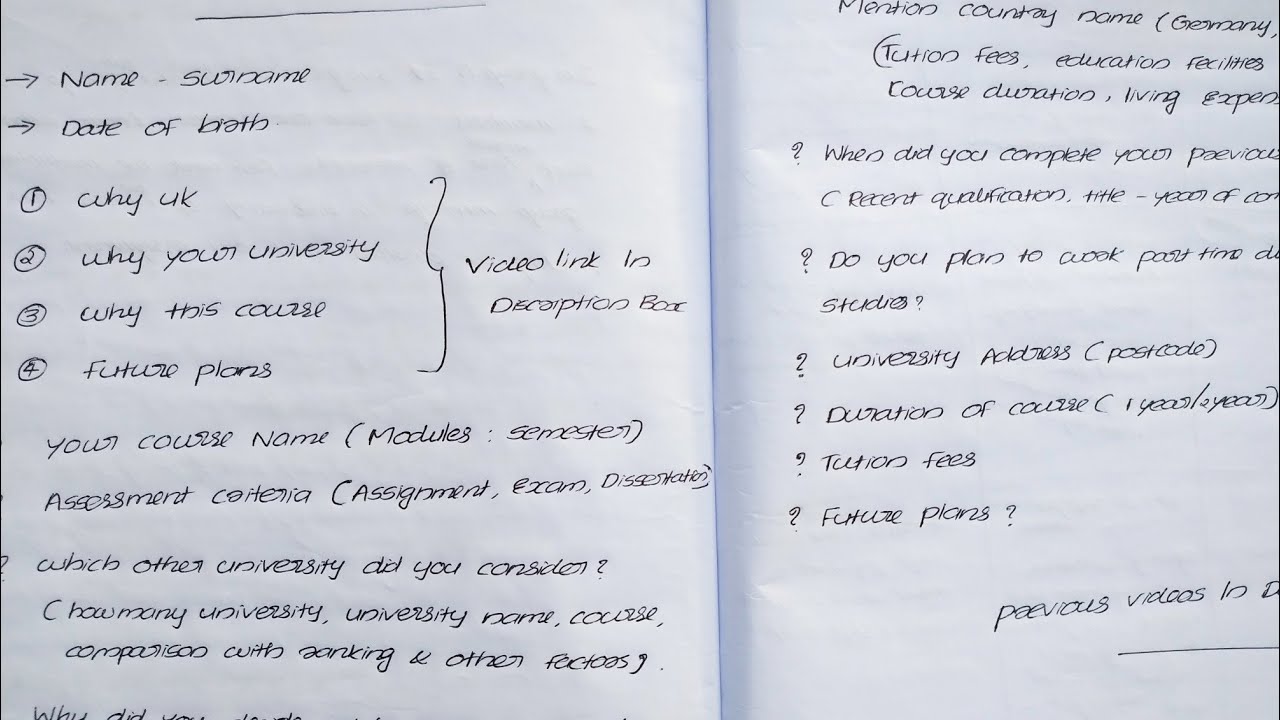 → Name - surname
→ Date of birth.
① why uk
② why your university
③ why this course
④ Future plans
Video link In
Decription Box
your course Name (Modules : semester)
Assessment criteria (Assignment, Exam, Dissertation)
? which other university did you consider?
(how many university, university name, course,
comparison with ranking & other factors).
Why did you
Mention country name (Germany,
(Tution fees, education fecilities
course duration, living Expen
? When did you complete your previous
(Recent qualification, title - year of com
? Do you plan to work part time du
studies?
? university Address (postcode)
? Duration of course (1 year/2year)
? Tution fees
? Future plans?
previous videos In D